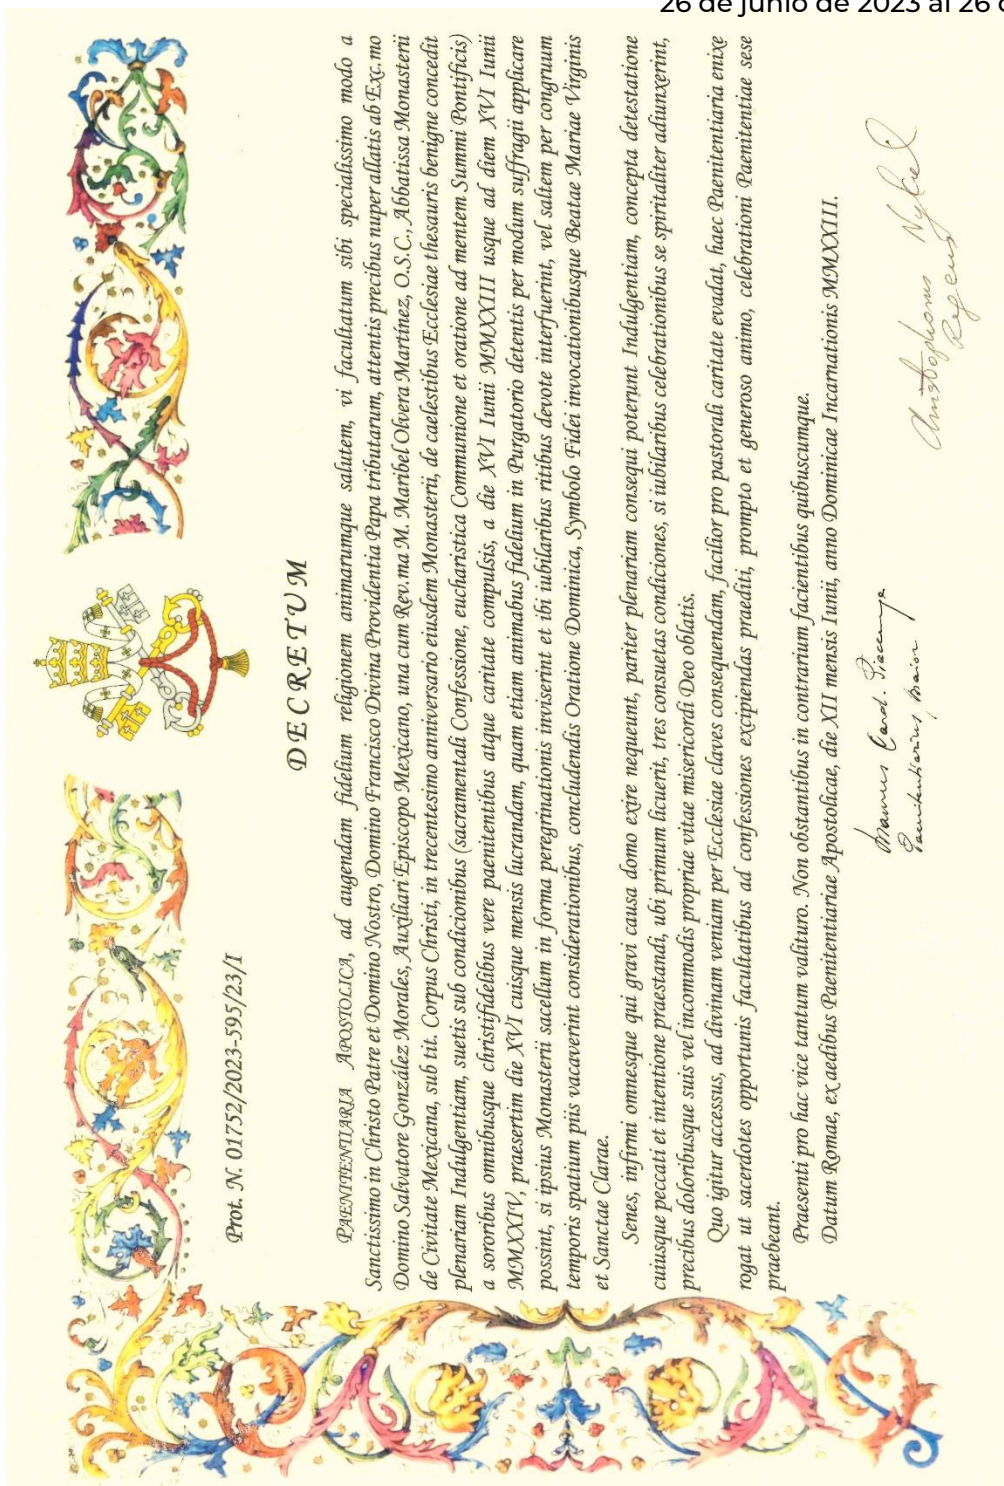 26 de junio de 2023 al 26 d
Prot. N. 01752/2023-595/23/I
DECRETUM
PAENITENTIARIA APOSTOLICA, ad augendam fidelium religionem animarumque salutem, vi facultatum sibi specialissimo modo a
Sanctissimo in Christo Patre et Domino Nostro, Domino Francisco Divina Providentia Papa tributarum, attentis precibus nuper allatis ab Exc.mo
Domino Salvatore González Morales, Auxiliari Episcopo Mexicano, una cum Rev.ma M. Maribel Olvera Martínez, O.S.C., Abbatissa Monasterii
de Civitate Mexicana, sub tit. Corpus Christi, in trecentesimo anniversario eiusdem Monasterii, de caelestibus Ecclesiae thesauris benigne concedit
plenariam Indulgentiam, suetis sub condicionibus (sacramentali Confessione, eucharistica Communione et oratione ad mentem Summi Pontificis)
a sororibus omnibusque christifidelibus vere paenitentibus atque caritate compulsis, a die XVI Iunii MMXXIII usque ad diem XVI Iunii
MMXXIV, praesertim die XVI cuiusque mensis lucrandam, quam etiam animabus fidelium in Purgatorio detentis per modum suffragii applicare
possint, si ipsius Monasterii sacellum in forma peregrinationis inviserint et ibi iubilaribus ritibus devote interfuerint, vel saltem per congruum
temporis spatium piis vacaverint considerationibus, concludendis Oratione Dominica, Symbolo Fidei invocationibusque Beatae Mariae Virginis
et Sanctae Clarae.
Senes, infirmi omnesque qui gravi causa domo exire nequeunt, pariter plenariam consequi poterunt Indulgentiam, concepta detestatione
cuiusque peccati et intentione praestandi, ubi primum licuerit, tres consuetas condiciones, si iubilaribus celebrationibus se spiritaliter adiunxerint,
precibus doloribusque suis vel incommodis propriae vitae misericordi Deo oblatis.
Quo igitur accessus, ad divinam veniam per Ecclesiae claves consequendam, facilior pro pastorali caritate evadat, haec Paenitentiaria enixe
rogat ut sacerdotes opportunis facultatibus ad confessiones excipiendas praediti, prompto et generoso animo, celebrationi Paenitentiae sese
praebeant.
Praesenti pro hac vice tantum valituro. Non obstantibus in contrarium facientibus quibuscumque.
Datum Romae, ex aedibus Paenitentiariae Apostolicae, die XII mensis Iunii, anno Dominicae Incarnationis MMXXIII.
Maurus Card. Piacenza
Paenitentiarius Maior
Christophorus Nykiel
Regens